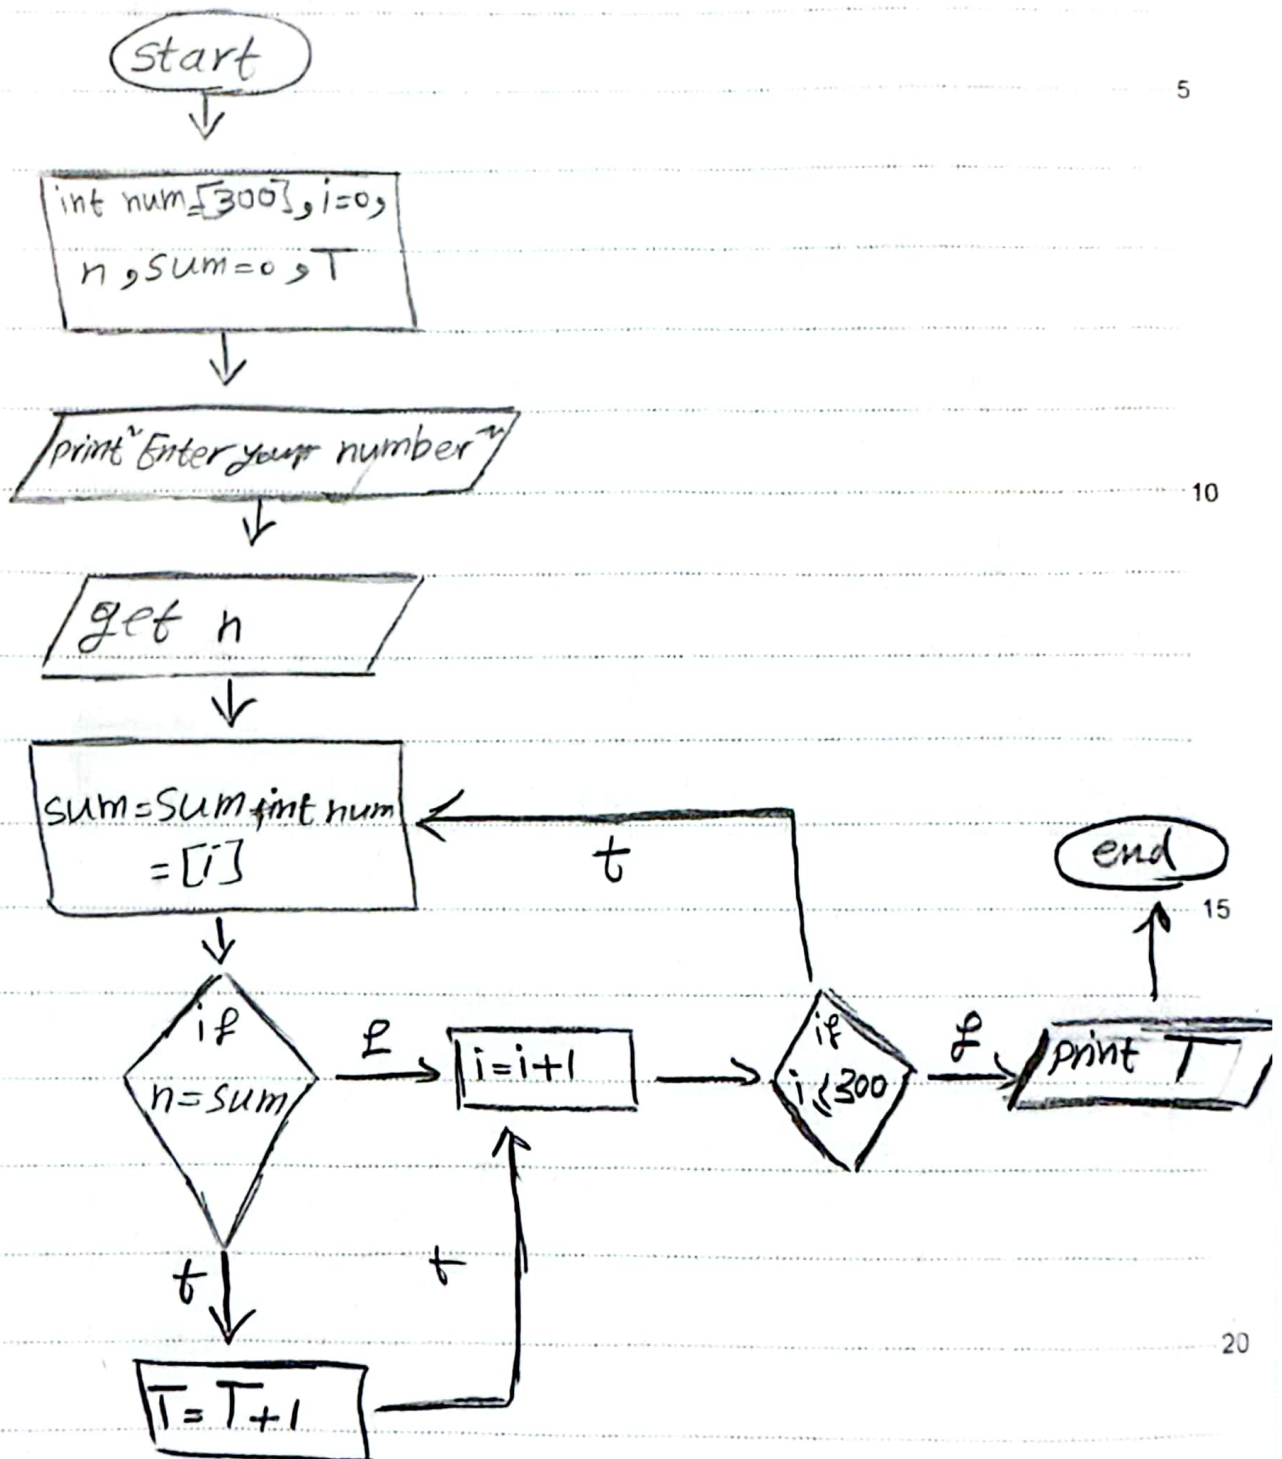 start
5
int num=[300], i=0,
n, sum=0, T
print "Enter your number"
10
get n
sum=sum+int num
=[i]
t
end
15
if
n=sum
f
i=i+1
if
i≤300
f
print T
t
t
20
T=T+1